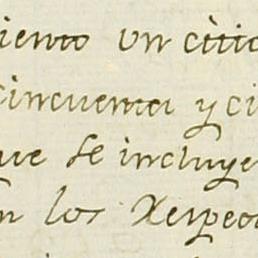 iento un citio
cincuenta y ci
que se incluye
n los Respec